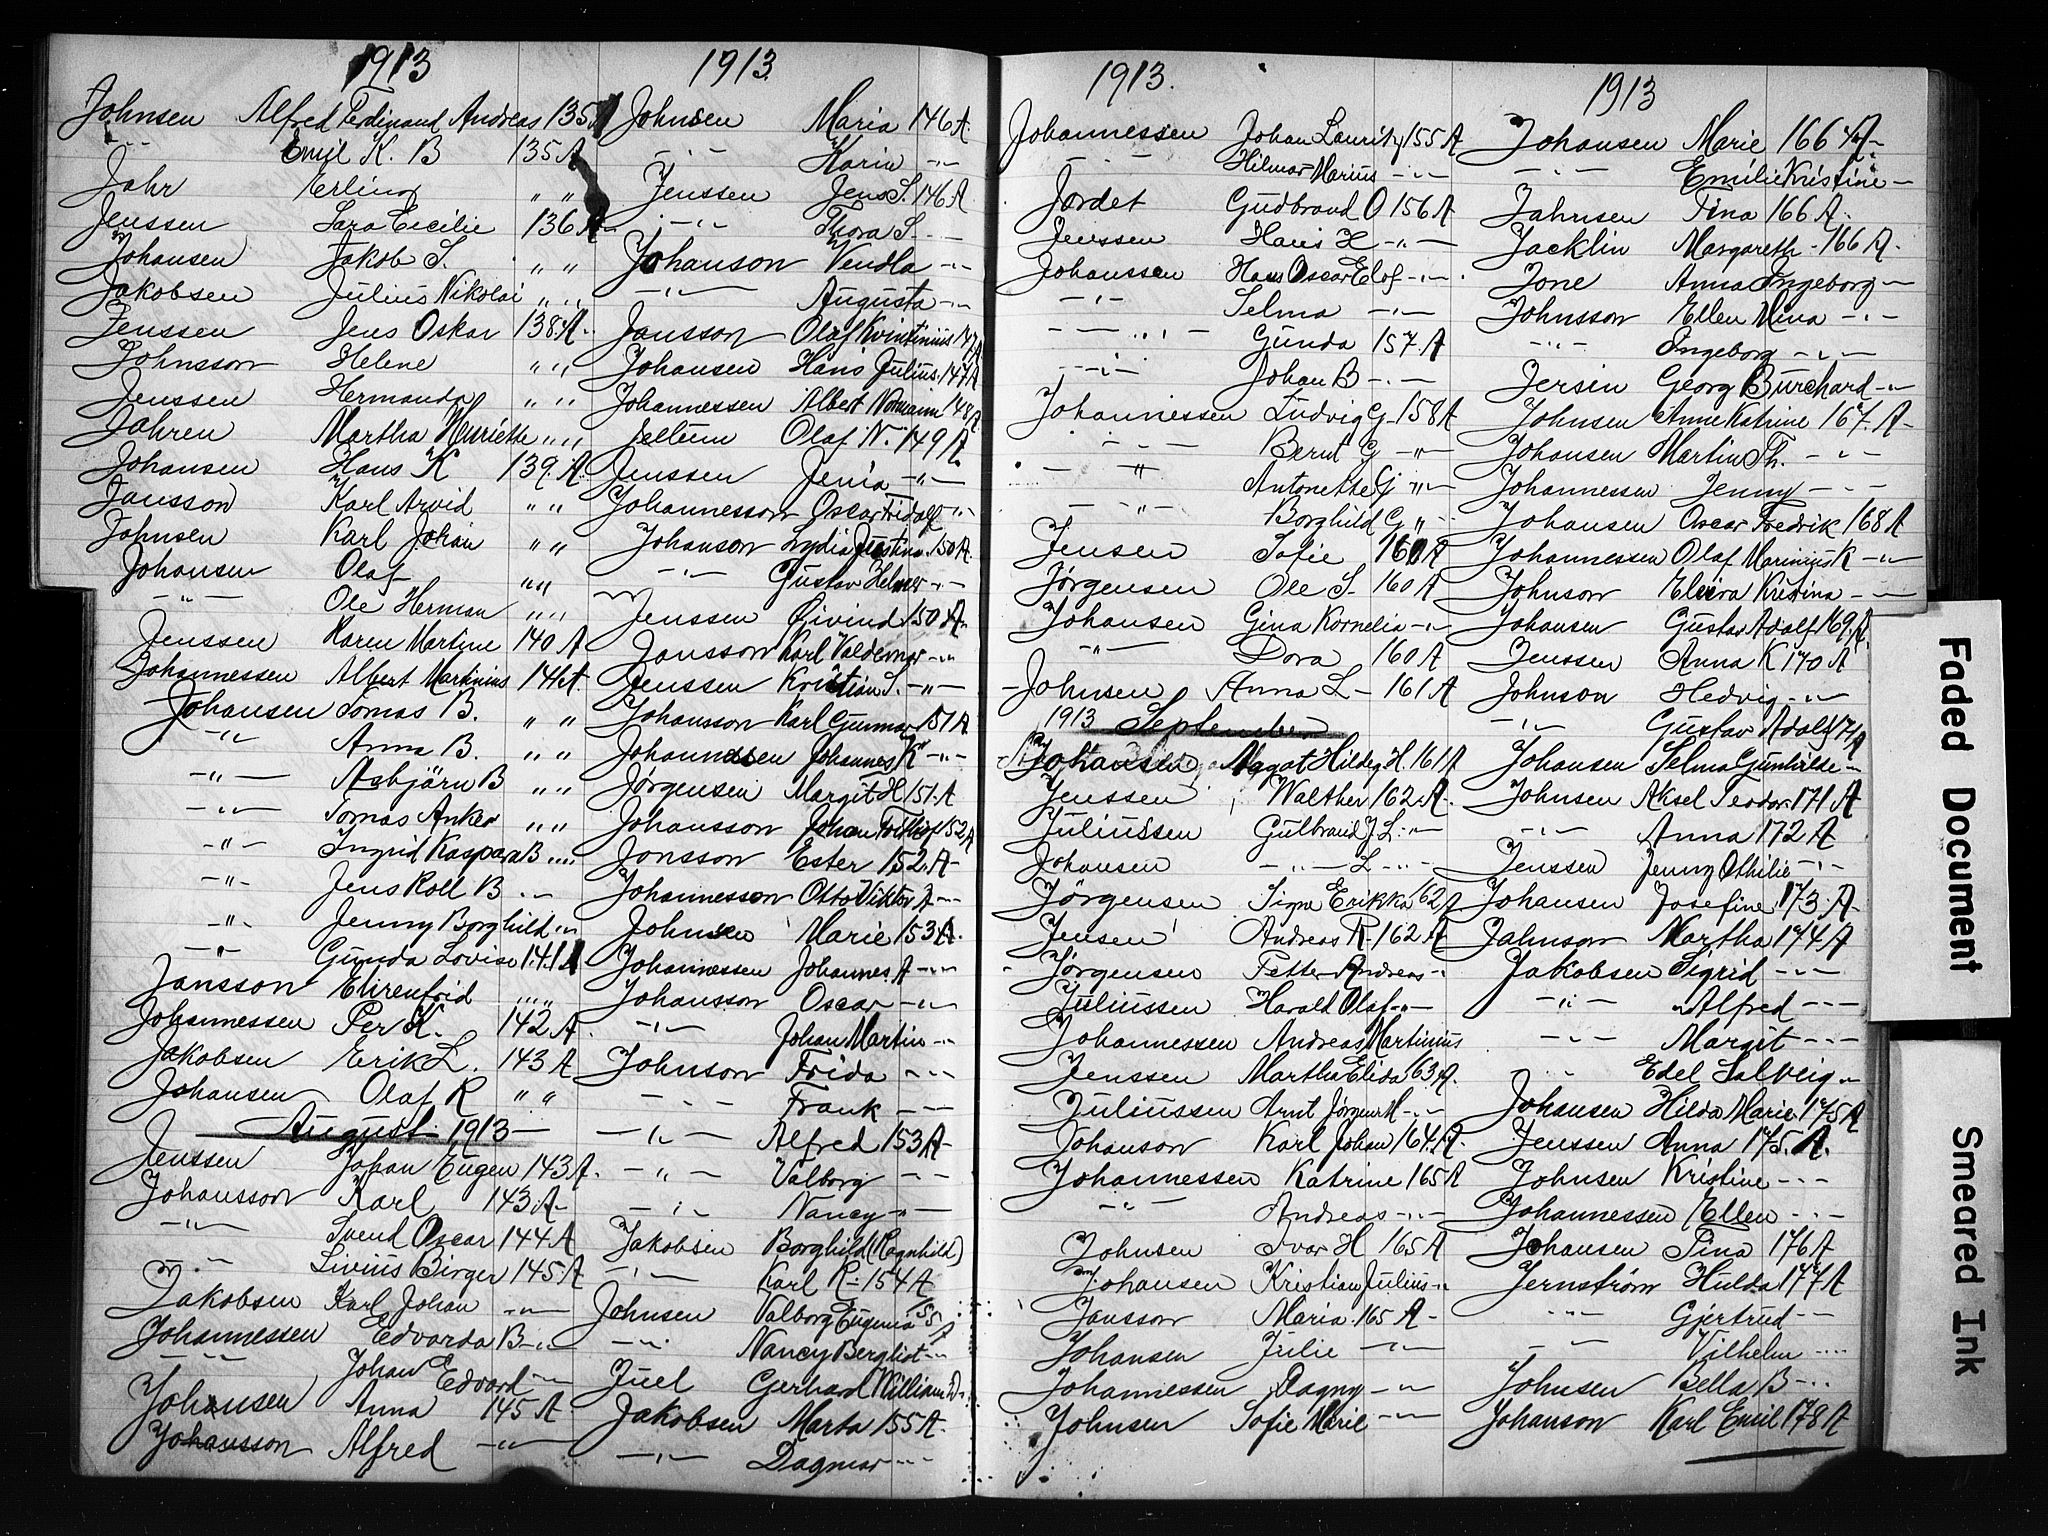 1913
Johnsen Alfred Ferdinand Andreas 135 A
-"- Emil K. B 135 A
Jahr Erling " "
Jenssen Sara Cecilie 136 A
Johansen Jakob S. " "
Jakobsen Julius Nikolai " "
Jenssen Jens Oskar 138 A
Johnsson Helene " "
Jenssen Hermanda " "
Jahren Martha Henriette " "
Johansen Hans K 139 A
Jansson Karl Arvid " "
Jahnsen Karl Johan " "
Johansen Olaf " "
-"- Ole Herman " "
Jenssen Karen Martine 140 A
Johannessen Albert Martinius 141 A
Johansen Tomas B. " "
-"- Anna B. " "
-"- Asbjärn B " "
-"- Tomas Anker " "
-"- Ingrid Kaspara B " "
-"- Jens Roll B -"-
-"- Jenny Borghild -"-
-"- Gunda Lovise 141 A
Jansson Ehrenfrid " "
Johannessen Per K. 142 A
Jakobsen Erik L. 143 A
Johansen Olaf R " "
August 1913
Jenssen Johan Eugen 143 A
Johansson Karl 143 A
-"- Svend Oscar 144 A
-"- Livius Birger 145 A
Jakobsen Karl Johan -"-
Johannessen Edvarda B -"-
-"- Johan Edvard -"-
Johansen Anna 145 A
Johansson Alfred -"-
1913
Johnsen Maria 146 A
-"- Karin -"-
Jenssen Jens S. 146 A
-"- Thora S. -"-
Johanson Vendla -"-
-"- Augusta -"-
Jansson Olaf Kvintinius 147 A
Johansen Hans Julius 147 A
Johannessen Albert Normann 148 A
Jeltum Olaf N. 149 A
Jenssen Jenia -"-
Johannesson Oscar Fridolf -"-
Johanson Lydia Justina 150 A
-"- Gustav Helmer -"-
Jenssen Øivind 150 A
Jansson Karl Valdemar -"-
Jenssen Kristian S. -"-
Johansson Karl Gunnar 151 A
Johannessen Johannes K -"-
Jørgensen Margit H 151 A
Johansson Johan Frithiof 152 A
Jonsson Ester 152 A
Johannesson Otto Viktor A -"-
Johnsen Marie 153 A
Johannessen Johannes A -"-
Johansson Oscar -"-
-"- Johan Martin -"-
Johnson Frida -"-
-"- Frank -"-
-"- Alfred 153 A
-"- Valborg -"-
-"- Nancy -"-
Jakobsen Borghild (Ragnhild)
-"- Karl R. 154 A
Johnsen Valborg Eugenia 155 A
-"- Nancy Bergliot -"-
Juel Gerhard William D -"-
Jakobsen Marta 155 A
-"- Dagmar -"-
1913.
Johannessen Johan Lauritz 155 A
-"- Hilmar Marius -"-
Jordet Gudbrand O 156 A
Jenssen Hans H -"-
Johanssen Hans Oscar Elof -"-
-"- Selma -"-
-"- Gunda 157 A
-"- Johan B -"-
Johannessen Ludvig G 158 A
-"- Bernt G -"-
-"- Antonette G -"-
-"- Borghild G "
Jensen Sofie 160 A
Jørgensen Ole S. 160 A
Johansen Gina Kornelia -"-
-"- Dora 160 A
Johnsen Anna L 161 A
1913 September
Johansen Aagot Hildeg H. 161 A
Jenssen Walther 162 A
Juliussen Gulbrand J. L. -"-
Johansen -"- L -"-
Jørgensen Signe Erikka 162 A
Jensen Andreas R 162 A
Jørgensen Petter Andreas -"-
Juliussen Harald Olaf -"-
Johannessen Andreas Martinius
Jenssen Martha Elida 163 A
Juliussen Arnt Jørgen H -"-
Johanson Karl Johan 164 A
Johannessen Katrine 165 A
-"- Andreas -"-
Johnsen Ivar H 165 A
Johansen Kristian Julius -"-
Jansson Maria 165 A
Johansen Julie -"-
Johannessen Dagny -"-
Johnsen Sofie Marie -"-
1913
Johansen Marie 166 A
-"- Emilie Kristine -
Jahnsen Tina 166 A
Jacklin Margareth 166 A
Jone Anna Ingeborg -
Johnsson Ellen Mina -"-
-"- Ingeborg -"-
Jersin Georg Burchard -"-
Johnsen Anne Katrine 167 A
Johansen Martin Th. -"-
Johannessen Jenny -"-
Johansen Oscar Fredrik 168 A
Johannessen Olaf Marinius K -"-
Johnson Elvira Kristina -"-
Johansen Gustav Adolf 169 A
Jenssen Anna K 170 A
Johnson Hedvig -"-
-"- Gustav Adolf 171 A
Johansen Selma Gunhilde -
Johnsen Aksel Teodor 171 A
-"- Anna 172 A
Jenssen Jenny Othilie -"-
Johansen Josefine 173 A
Jahnson Martha 174 A
Jakobsen Sigrid -"-
-"- Alfred -"-
-"- Margit -"-
-"- Edel Salveig -"-
Johansen Hilda Marie 175 A
Jenssen Anna 175 A
Johnsen Kristine -"-
Johannessen Ellen -"-
Johansen Tina 176 A
Jernstrøm Hulda 177 A
-"- Gjertrud -"-
-"- Vilhelm -"-
Johnsen Bella B -"-
Johanson Karl Emil 178 A
Faded Document
Smeared Ink